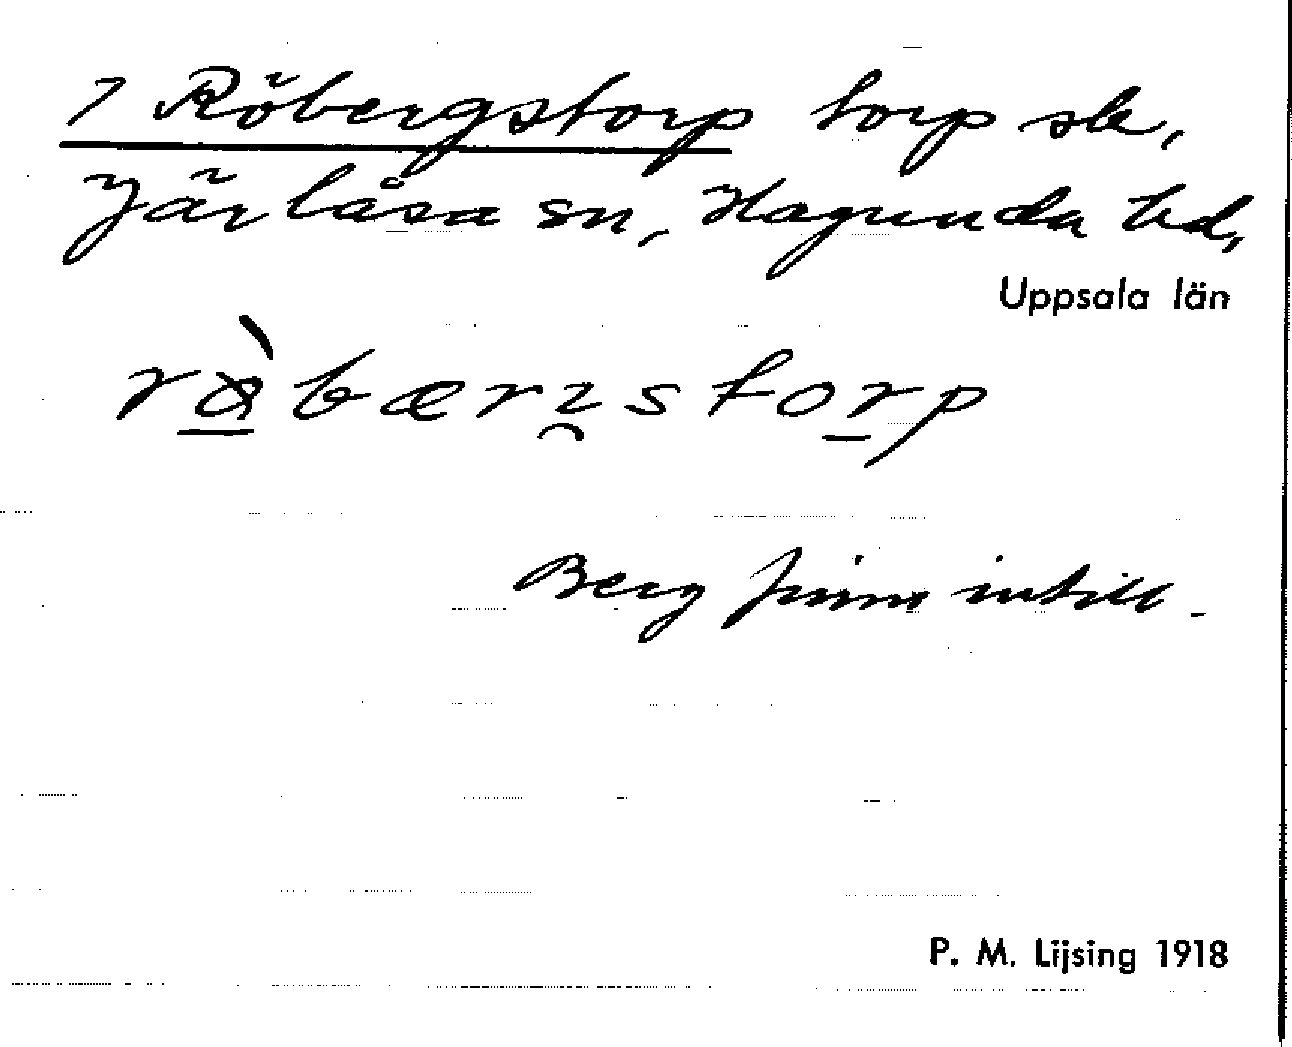 7 Röbergstorp torp sk,
Järlåsa sn, Hagunda hd,
Uppsala län
rø̀bærɪ̯storp
Berg finns intill.
P. M. Lijsing 1918